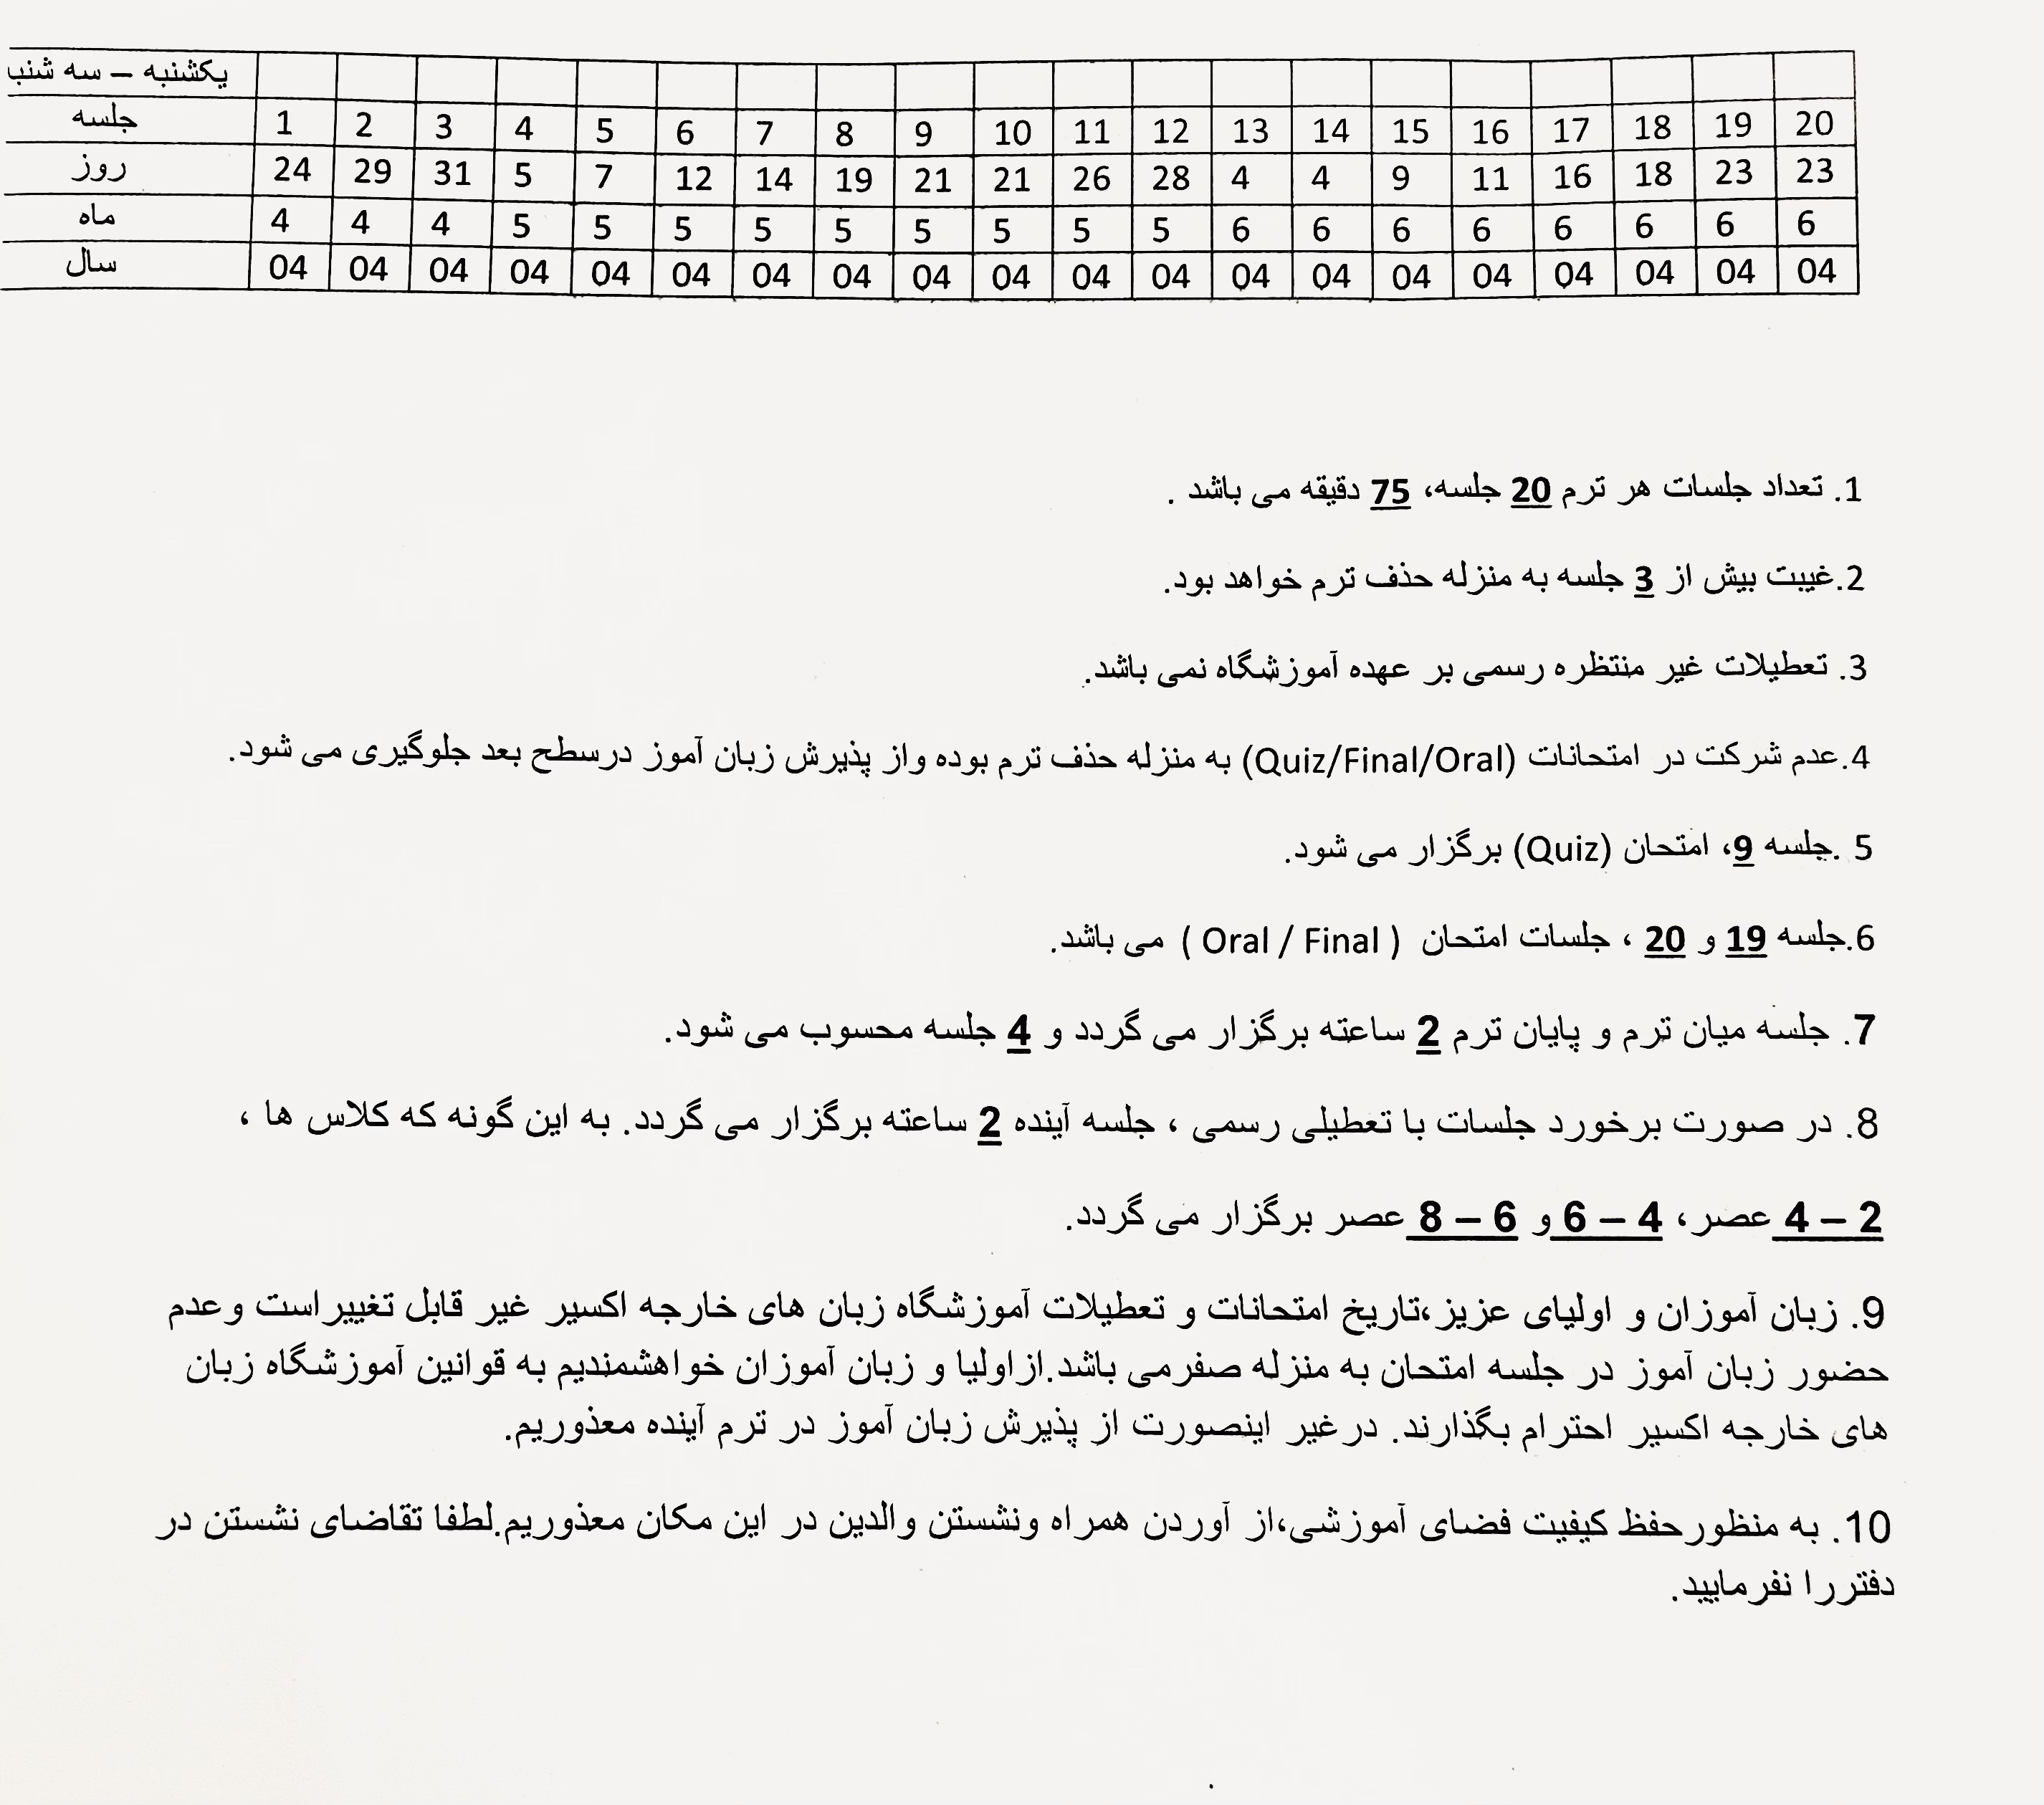 یکشنبه – سه شنب
جلسه 1 2 3 4 5 6 7 8 9 10 11 12 13 14 15 16 17 18 19 20
روز 24 29 31 5 7 12 14 19 21 21 26 28 4 4 9 11 16 18 23 23
ماه 4 4 4 5 5 5 5 5 5 5 5 5 6 6 6 6 6 6 6 6
سال 04 04 04 04 04 04 04 04 04 04 04 04 04 04 04 04 04 04 04 04
1. تعداد جلسات هر ترم 20 جلسه، 75 دقیقه می باشد .
2.غیبت بیش از 3 جلسه به منزله حذف ترم خواهد بود.
3. تعطیلات غیر منتظره رسمی بر عهده آموزشگاه نمی باشد.
4.عدم شرکت در امتحانات (Quiz/Final/Oral) به منزله حذف ترم بوده واز پذیرش زبان آموز درسطح بعد جلوگیری می شود.
5 .جلسه 9، امتحان (Quiz) برگزار می شود.
6.جلسه 19 و 20 ، جلسات امتحان ( Oral / Final ) می باشد.
7. جلسه میان ترم و پایان ترم 2 ساعته برگزار می گردد و 4 جلسه محسوب می شود.
8. در صورت برخورد جلسات با تعطیلی رسمی ، جلسه آینده 2 ساعته برگزار می گردد. به این گونه که کلاس ها ،
2 – 4 عصر، 4 – 6 و 6 – 8 عصر برگزار می گردد.
9. زبان آموزان و اولیای عزیز،تاریخ امتحانات و تعطیلات آموزشگاه زبان های خارجه اکسیر غیر قابل تغییراست وعدم
حضور زبان آموز در جلسه امتحان به منزله صفرمی باشد.ازاولیا و زبان آموزان خواهشمندیم به قوانین آموزشگاه زبان
های خارجه اکسیر احترام بگذارند. درغیر اینصورت از پذیرش زبان آموز در ترم آینده معذوریم.
10. به منظورحفظ کیفیت فضای آموزشی،از آوردن همراه ونشستن والدین در این مکان معذوریم.لطفا تقاضای نشستن در
دفتررا نفرمایید.